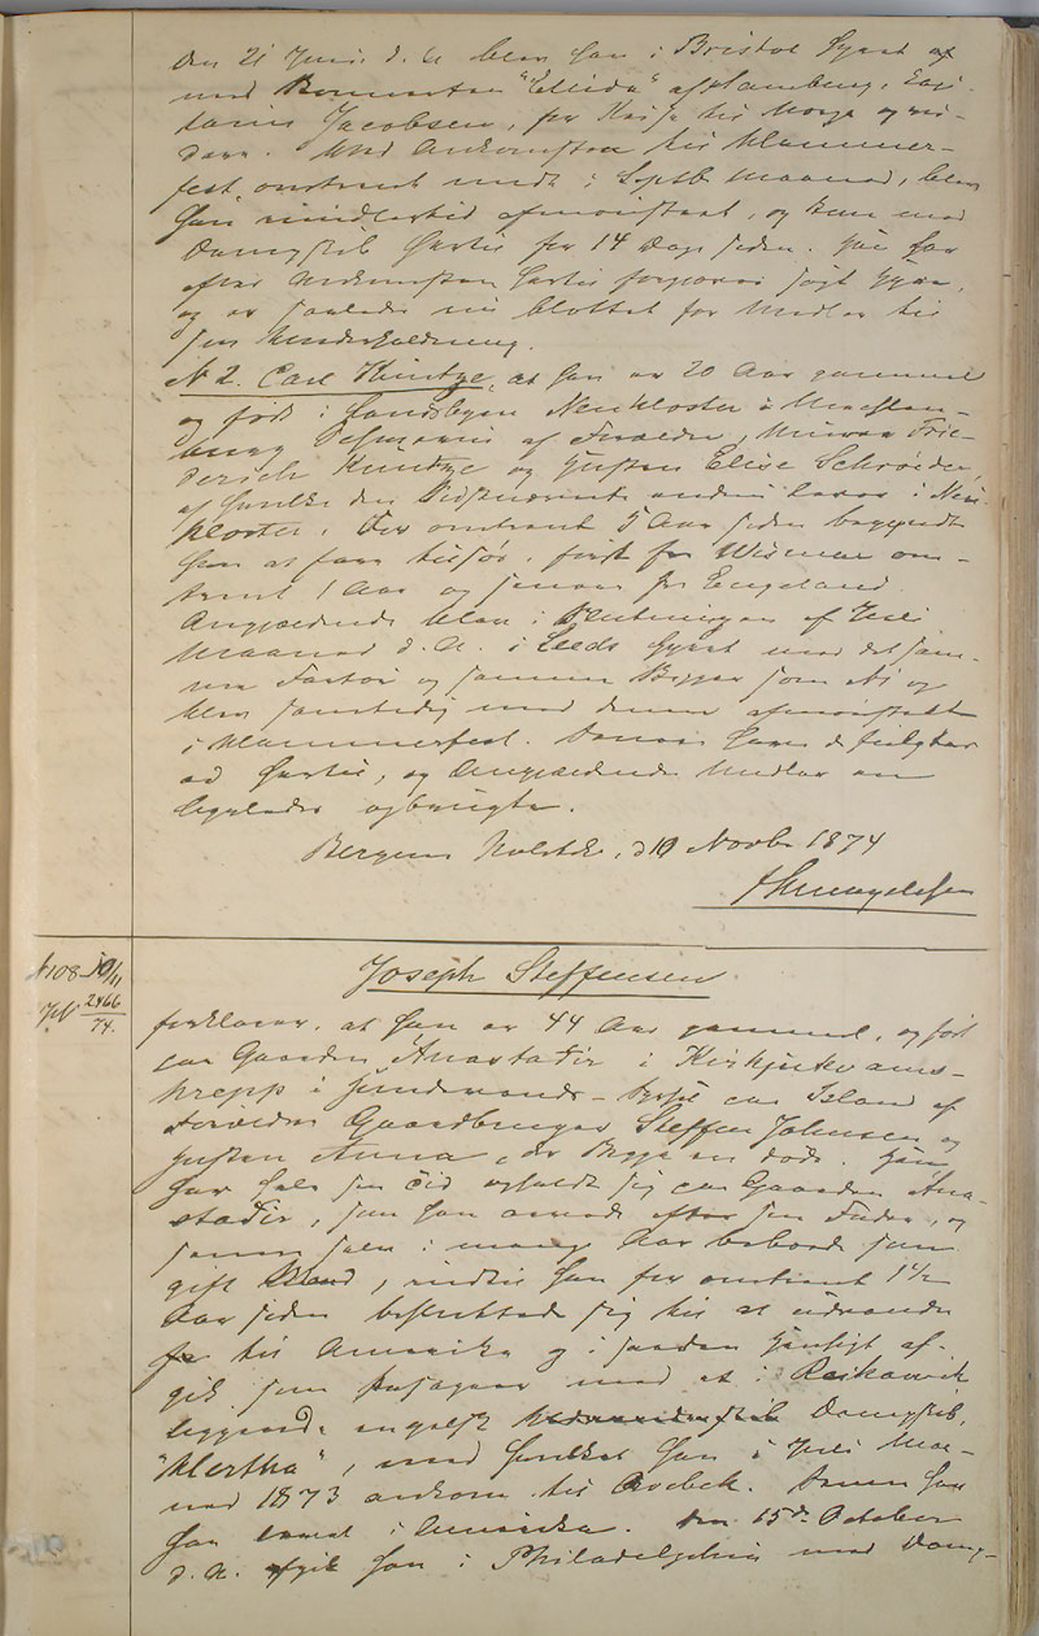 den 21 Juni d. A. blev han i Bristol hyret af
med Barnarten "Ellida" af Hamburg, Capi-
tain Jacobsen, for Reise til Norge og vi-
dere. Ved Ankomsten til Hammer-
fest omtrent midt i Septb. Maaned, blev
han imidlertid afmønstret, og kom med
Dampskib hertil for 14 Dage siden. Han har
efter Ankomsten hertil forgjæves søgt Hyre,
og er saaledes nu blottet for Midler til
sin Underholdning.
N 2. Carl Küntze, at han er 20 Aar gammel
og født i Landsbyen Neukloster i
Schwerin af Forældre, Murer Frie-
derich Küntze og Hustru Elise Schröder,
af hvilke den Sidstnævnte endnu lever i Neu-
kloster. For omtrent 5 Aar siden begyndte
han at fare tilsøs, først fra Wismar om-
trent 1 Aar og senere fra England.
Angjældende blev i Slutningen af Juli
Maaned d. A. i Leeds hyret med det sam-
me Fartøi og samme Reise som N1 og
blev samtidig med denne afmønstret
i Hammerfest. Senere have de fulgtes
ad hertil, og Angjældendes Midler ere
ligeledes opbrugte.
Bergens Politik. d 10 Novbr 1874

N 108 10/11
JN 2466/74.
Joseph Steffensen
forklarer, at han er 44 Aar gammel, og født
paa Gaarden Anastadir i Kirkjuhvams-
hrepp i Hunavands-Syssel paa Island af
Forældre Gaardbruger Steffen Johnsen og
Hustru Anna, der Begge ere døde. Han
har hele sin Tid opholdt sig paa Gaarden Ana-
stadir, som han arvede efter sin Fader, og
senere selv i mange Aar beboede som
gift Mand, indtil han for omtrent 1½
Aar siden besluttede sig til at udvandre
fra til Amerika og i saadan Hensigt af-
gik som Passager med et i Reikiavik
liggende engelsk Udvandrerskib Dampskib,
"Hertha", med hvilket han i Juli Maa-
ned 1873 ankom til Qvebek. Siden har
han været i Amerika. Den 15de October
d. A. afgik han i Philadelphia med Damp-